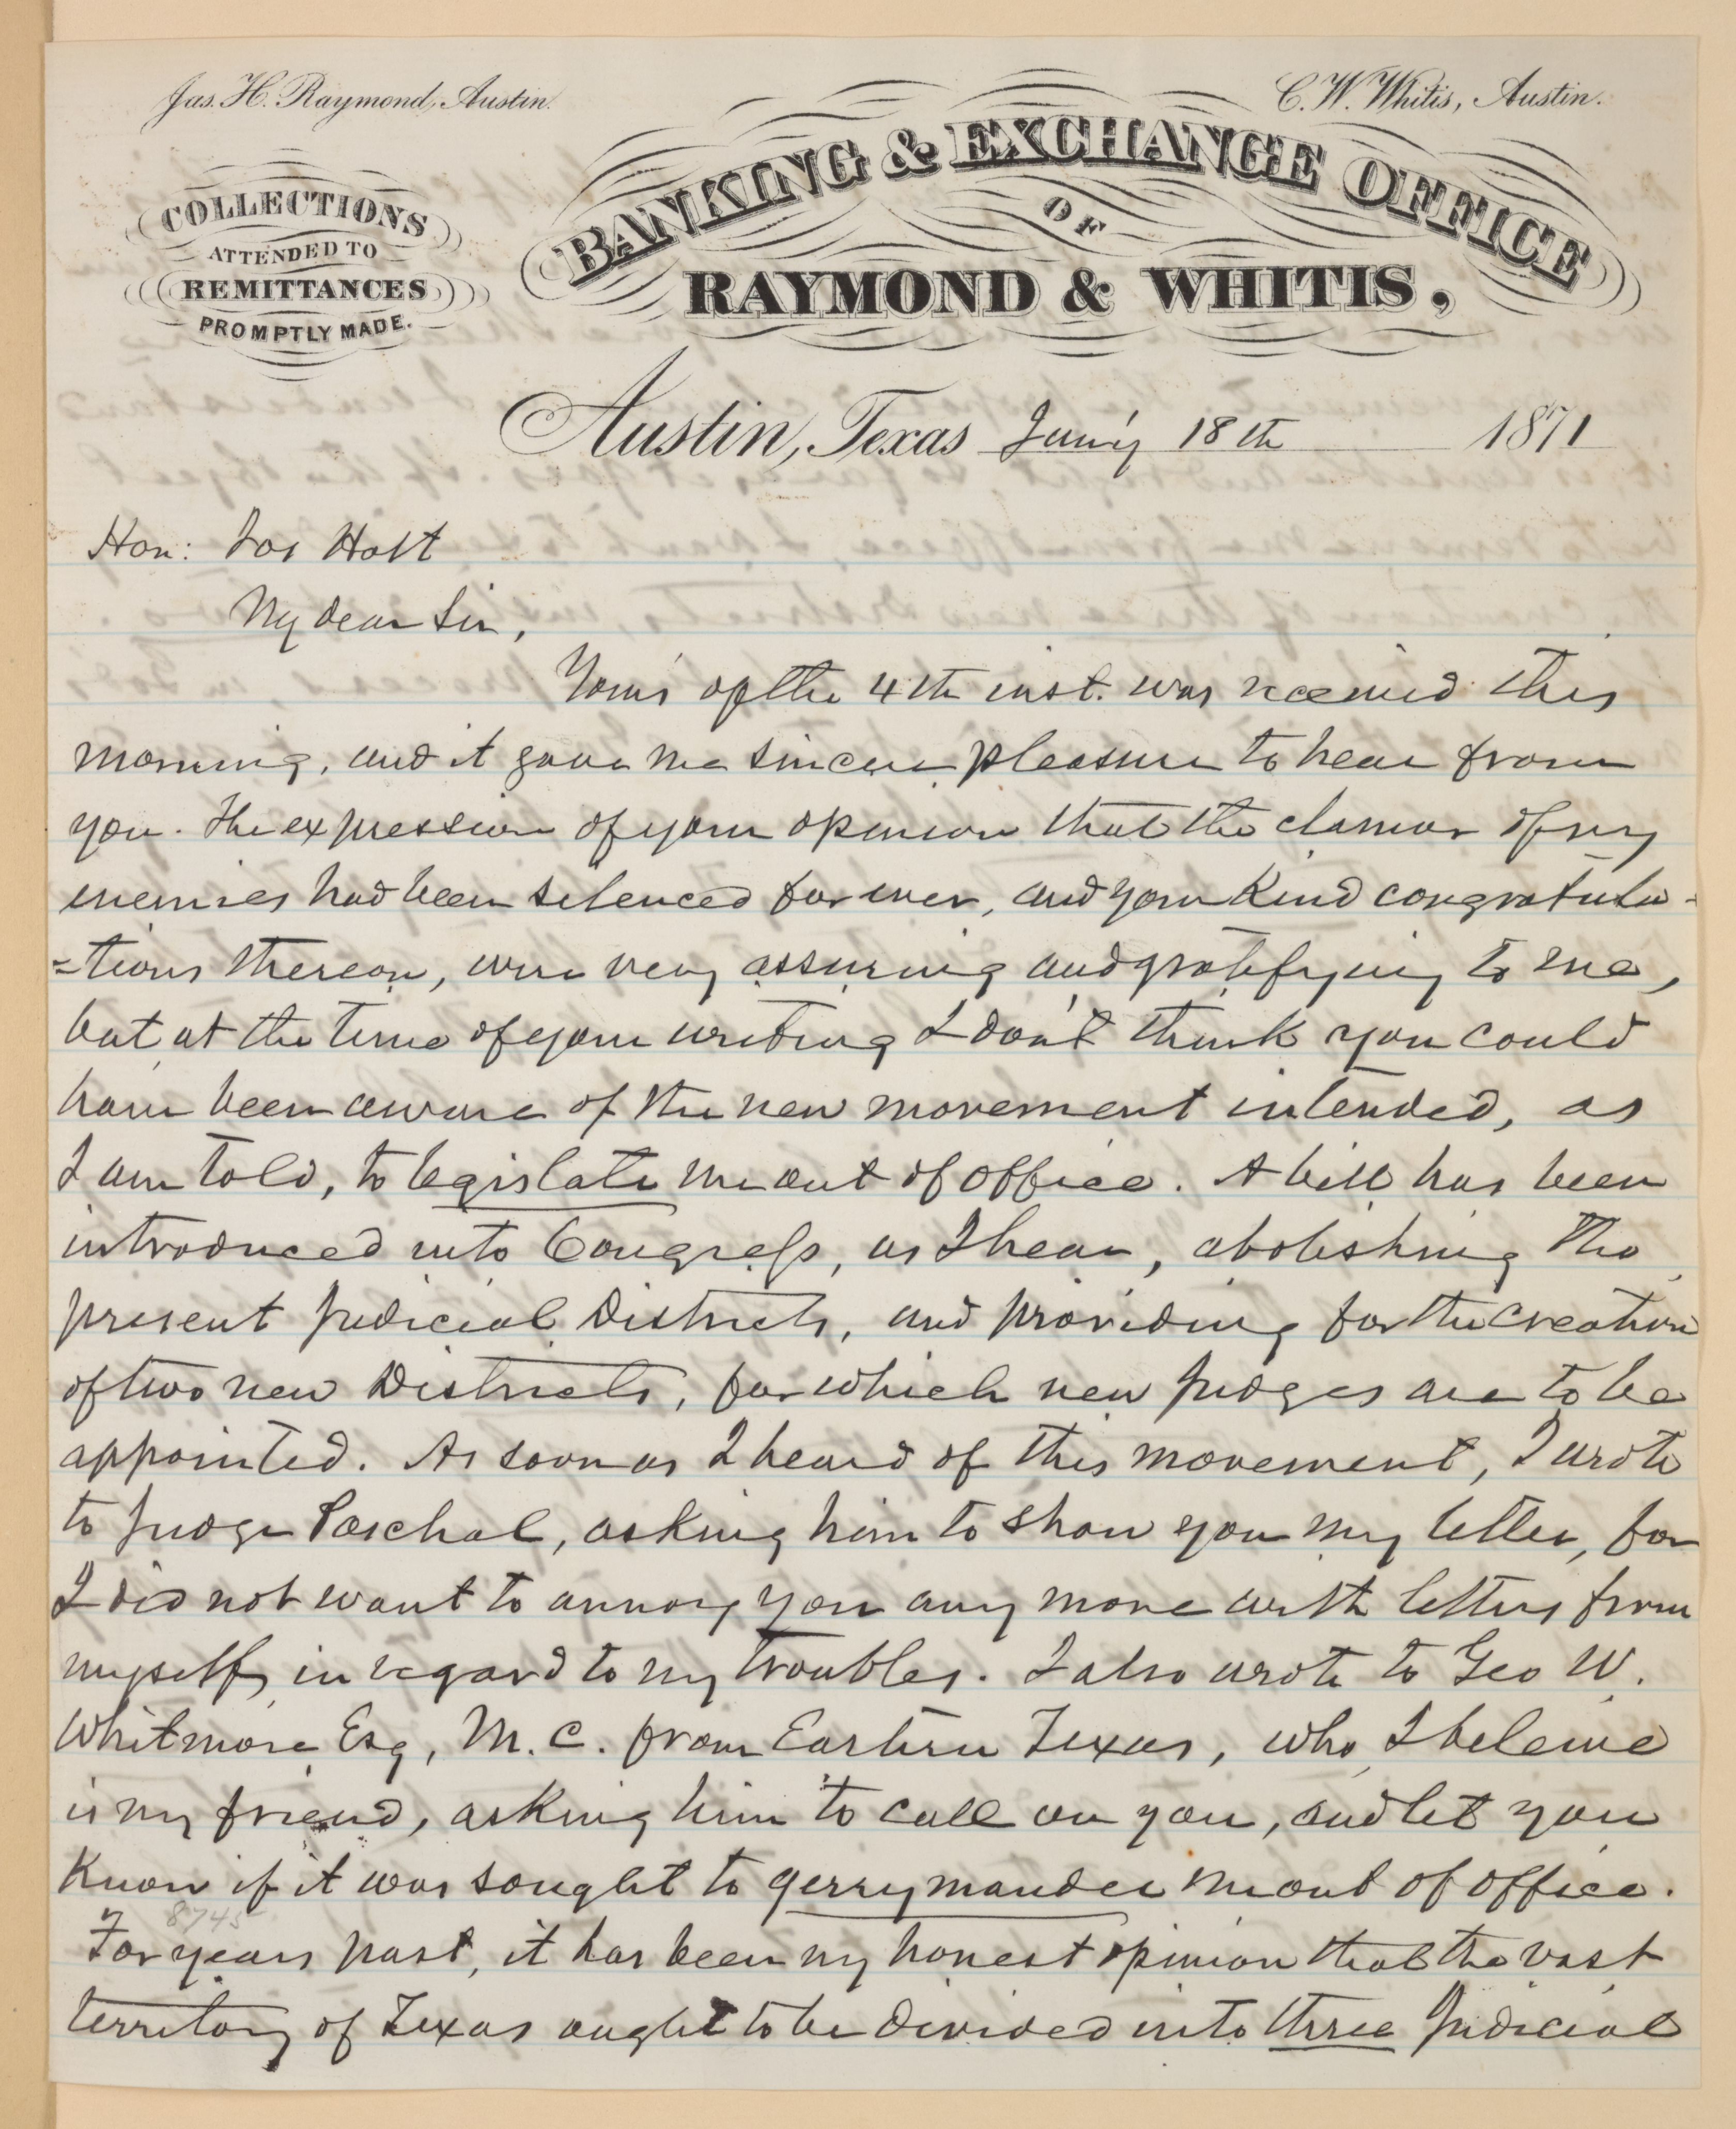 Jas. H. Raymond, Austin.
C. W. Whitis, Austin.
COLLECTIONS
ATTENDED TO
REMITTANCES
PROMPTLY MADE.
BANKING & EXCHANGE OFFICE
OF
RAYMOND & WHITIS,
Austin, Texas Jan'y 18th 1871
Hon: Jos Holt
My dear Sir,
Yours of the 4th inst. was received this
morning, and it gave me sincere pleasure to hear from
you. The expression of your opinion that the clamor of my
enemies had been silenced forever, and your kind congratula-
=tions thereon, were very assuring and gratifying to me,
but at the time of your writing I don't think you could
have been aware of the new movement intended, as
I am told, to legislate me out of office. A bill has been
introduced into Congress, as I hear, abolishing the
present Judicial Districts, and providing for the creation
of two new Districts, for which new Judges are to be
appointed. As soon as I heard of this movement, I wrote
to Judge Paschal, asking him to show you my letter, for
I did not want to annoy you any more with letters from
myself, in regard to my troubles. I also wrote to Geo W.
Whitmore Esq, M. C. from Eastern Texas, who I beleive
is my friend, asking him to call on you, and let you
know if it was sought to gerrymander me out of office.
8745
For years past, it has been my honest opinion that the vast
territory of Texas ought to be divided into three Judicial